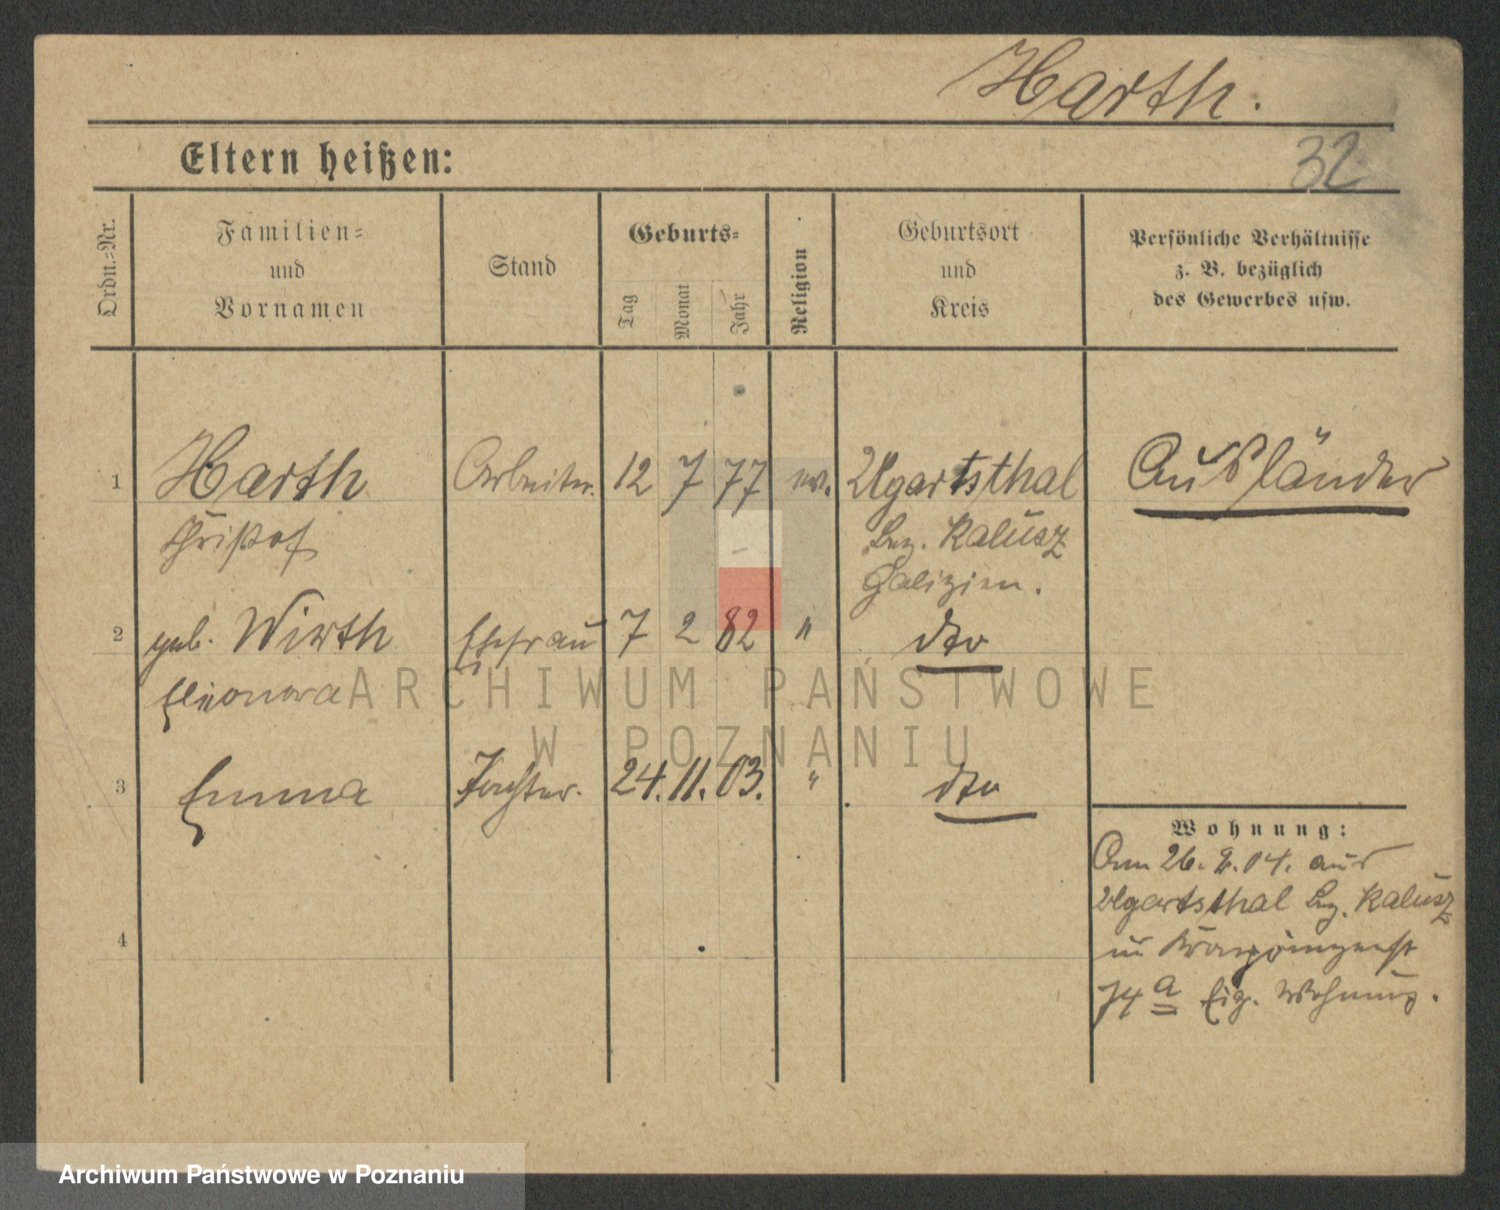 Harth.
Eltern heißen:
32
Ordn.-Nr.
Familien-
und
Vornamen
Stand
Geburts-
Tag
Monat
Jahr
Religion
Geburtsort
und
Kreis
Persönliche Verhältnisse
z. B. bezüglich
des Gewerbes usw.
1 Harth Arbeiter. 12 7 77 ev. Ugartsthal Ausländer
Christof Bez. Kalusz
Galizien.
2 geb. Wirth Ehefrau 7 2 82 " dto
Eleonora
3 Emma Tochter. 24. 11. 03. " dto
Wohnung:
Am 26. 2. 04. aus
Ugartsthal Bez. Kalusz
in
74 a Eig. Wohnung.
4
ARCHIWUM PAŃSTWOWE
W POZNANIU
Archiwum Państwowe w Poznaniu